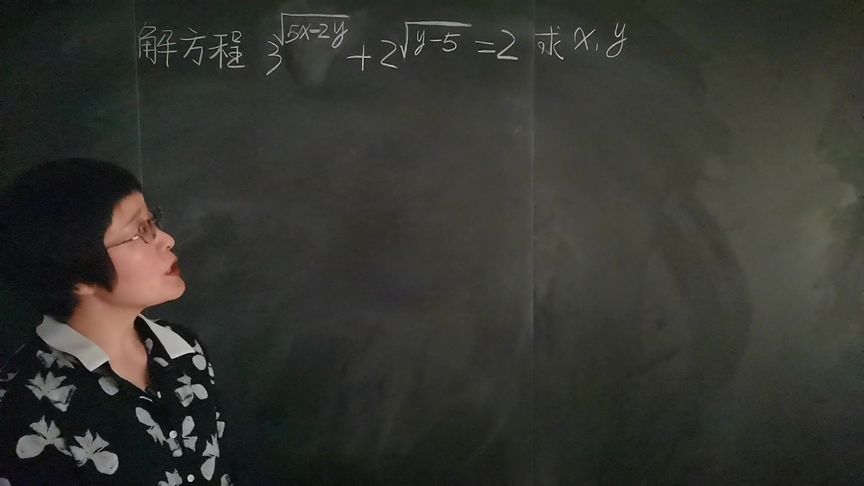 解方程 3^{\sqrt{5x-2y}} + 2^{\sqrt{y-5}} = 2 求 x, y